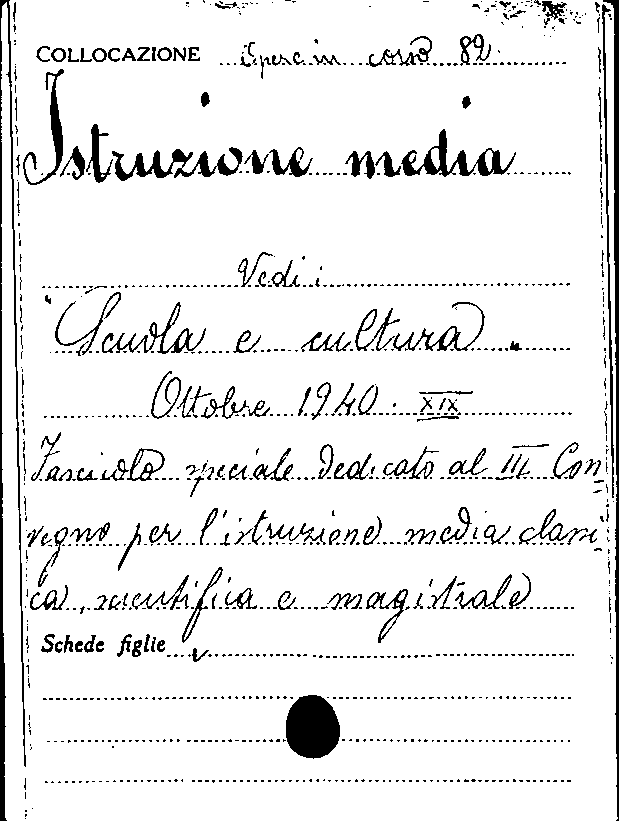 COLLOCAZIONE Opere in corso 82.
Istruzione media
Vedi:
"Scuola e cultura"
Ottobre 1940. XIX
Fascicolo speciale dedicato al III Con=
vegno per l'istruzione media classi=
ca, scientifica e magistrale
Schede figlie